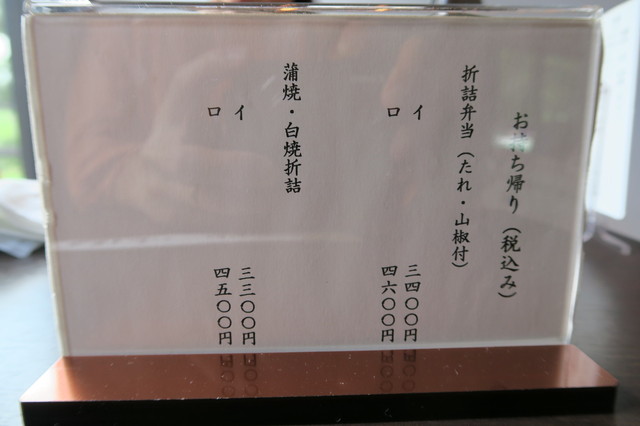 お持ち帰り（税込み）
折詰弁当（たれ・山椒付）
イ 三四〇〇円
ロ 四六〇〇円
蒲焼・白焼折詰
イ 三三〇〇円
ロ 四五〇〇円